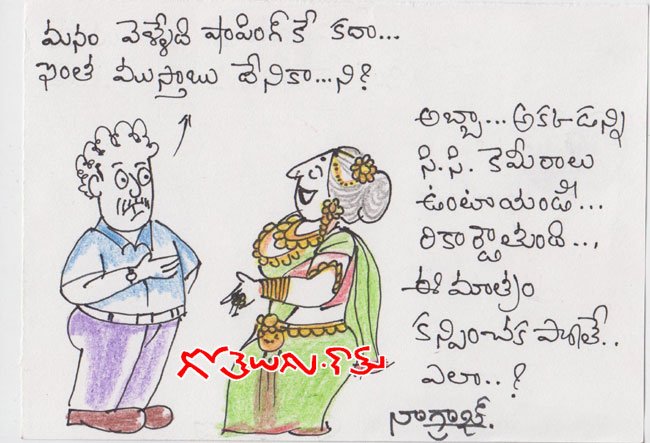 మనం వెళ్ళేది షాపింగ్ కే కదా...
ఇంత ముస్తాబు దేనికా...ని?
అబ్బా... అక్కడన్ని
సి.సి. కెమీరాలు
ఉంటాయండి...
రికార్డౌతుంది...
ఈ మాత్రం
కన్పించక పోతే..
ఎలా..?
నాగ్రాజ్.
గోతెలుగు.కామ్